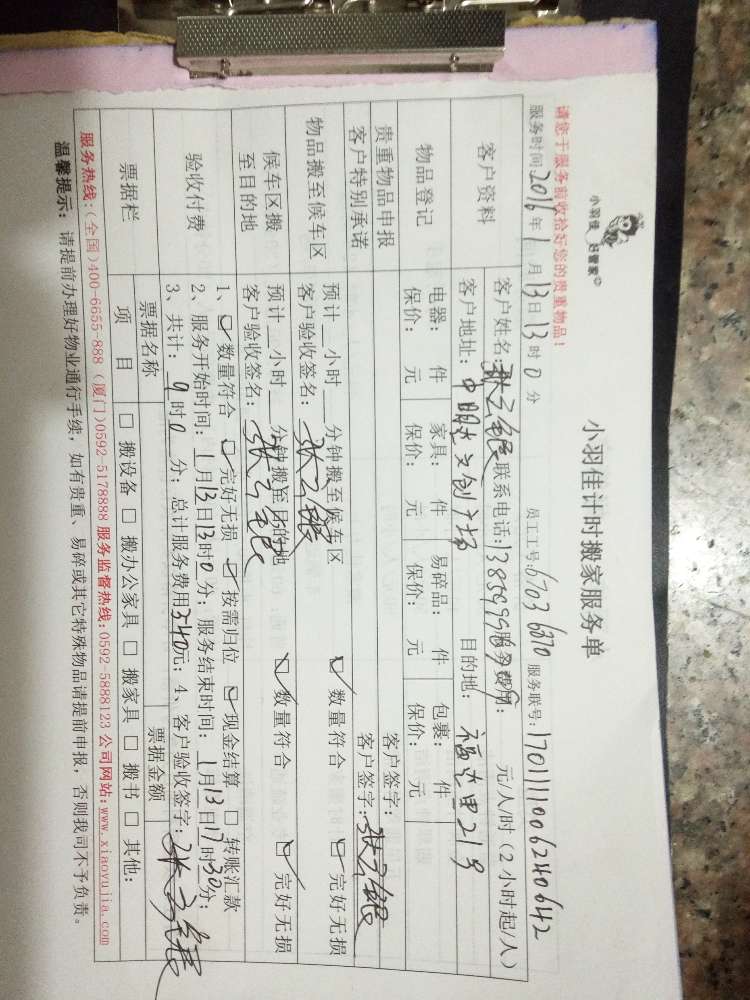 小羽佳 好管家
小羽佳计时搬家服务单
请您于服务前收拾好您的贵重物品!
服务时间 2016年1月13日13时0分 员工工号:6703 6870 服务联号:1701111006240642
客户资料 客户姓名: 联系电话: 服务费用: 元/人/时(2小时起/人)
客户地址: 文创广场 目的地: 福 里219
物品登记 电器: 件 家具: 件 易碎品: 件 包裹: 件
保价: 元 保价: 元 保价: 元 保价: 元
贵重物品申报 客户签字:
客户特别承诺 客户签字:
物品搬至候车区 预计 小时 分钟搬至候车区 数量符合 完好无损
客户验收签名:
候车区搬至目的地 预计 小时 分钟搬至目的地 数量符合 完好无损
客户验收签名:
验收付费 1、 数量符合 完好无损 按需归位 现金结算 转账汇款
2、服务开始时间:1月13日13时0分; 服务结束时间:1月13日17时30分;
3、共计:9时0分; 总计服务费用540元; 4、客户验收签字:
票据栏 票据名称 票据金额
项 目 搬设备 搬办公家具 搬家具 搬书 其他:
服务热线:(全国)400-6655-888 (厦门)0592-5178888 服务监督热线:0592-5888123 公司网站:www.xiaoyujia.com
温馨提示: 请提前办理好物业通行手续,如有贵重、易碎或其它特殊物品请提前申报,否则我司不予负责。